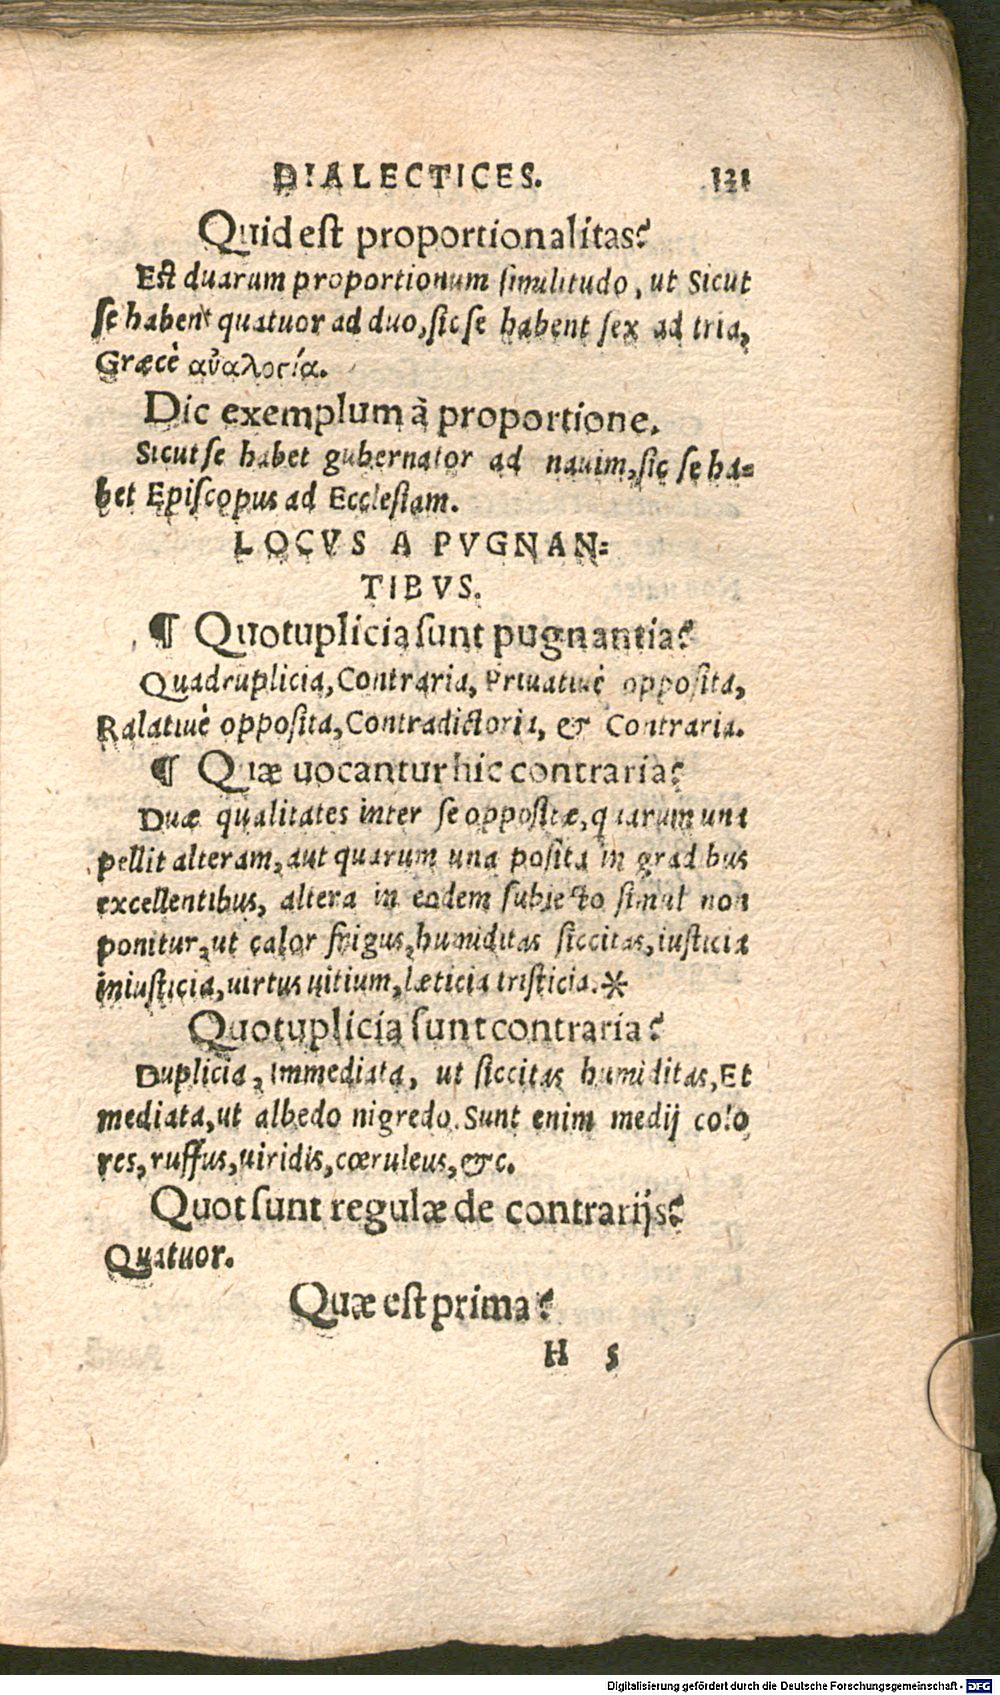 DIALECTICES. 121
Quid est proportionalitas?
Est duarum proportionum similitudo, ut Sicut
se habent quatuor ad duo, sic se habent sex ad tria,
Græcè ἀναλογία.
Dic exemplum à proportione.
Sicut se habet gubernator ad nauim, sic se ha=
bet Episcopus ad Ecclesiam.
LOCVS A PVGNAN=
TIBVS.
¶ Quotuplicia sunt pugnantia?
Quadruplicia, Contraria, Priuatiuè opposita,
Ralatiuè opposita, Contradictoria, & Contraria.
¶ Quæ uocantur hic contraria?
Duæ qualitates inter se oppositæ, quarum una
pellit alteram, aut quarum una posita in gradibus
excellentibus, altera in eodem subiecto simul non
ponitur, ut calor frigus, humiditas siccitas, iusticia
iniusticia, uirtus uitium, læticia tristicia.*
Quotuplicia sunt contraria?
Duplicia, Immediata, ut siccitas humiditas, Et
mediata, ut albedo nigredo. Sunt enim medij colo
res, ruffus, uiridis, cœruleus, &c.
Quot sunt regulæ de contrarijs?
Quatuor.
Quæ est prima?
H 5
Digitalisierung gefördert durch die Deutsche Forschungsgemeinschaft - DFG